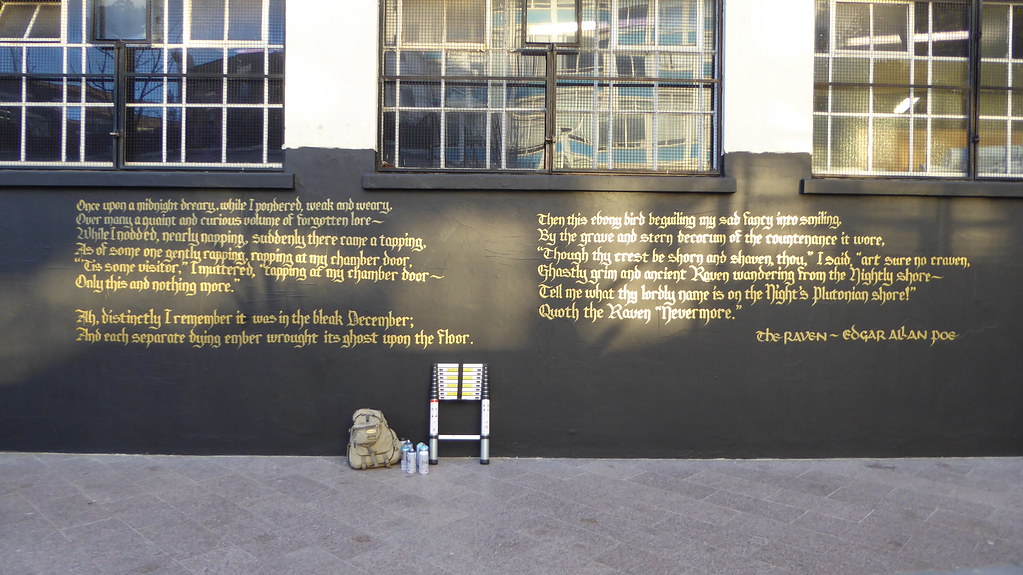 Once upon a midnight dreary, while I pondered, weak and weary,
Over many a quaint and curious volume of forgotten lore~
While I nodded, nearly napping, suddenly there came a tapping,
As of some one gently rapping, rapping at my chamber door.
"Tis some visitor," I muttered, "tapping at my chamber door~
Only this and nothing more."
Ah, distinctly I remember it was in the bleak December;
And each separate dying ember wrought its ghost upon the floor.
Then this ebony bird beguiling my sad fancy into smiling,
By the grave and stern decorum of the countenance it wore,
"Though thy crest be shorn and shaven, thou," I said, "art sure no craven,
Ghastly grim and ancient Raven wandering from the Nightly shore~
Tell me what thy lordly name is on the Night's Plutonian shore!"
Quoth the Raven "Nevermore."
The Raven ~ Edgar Allan Poe